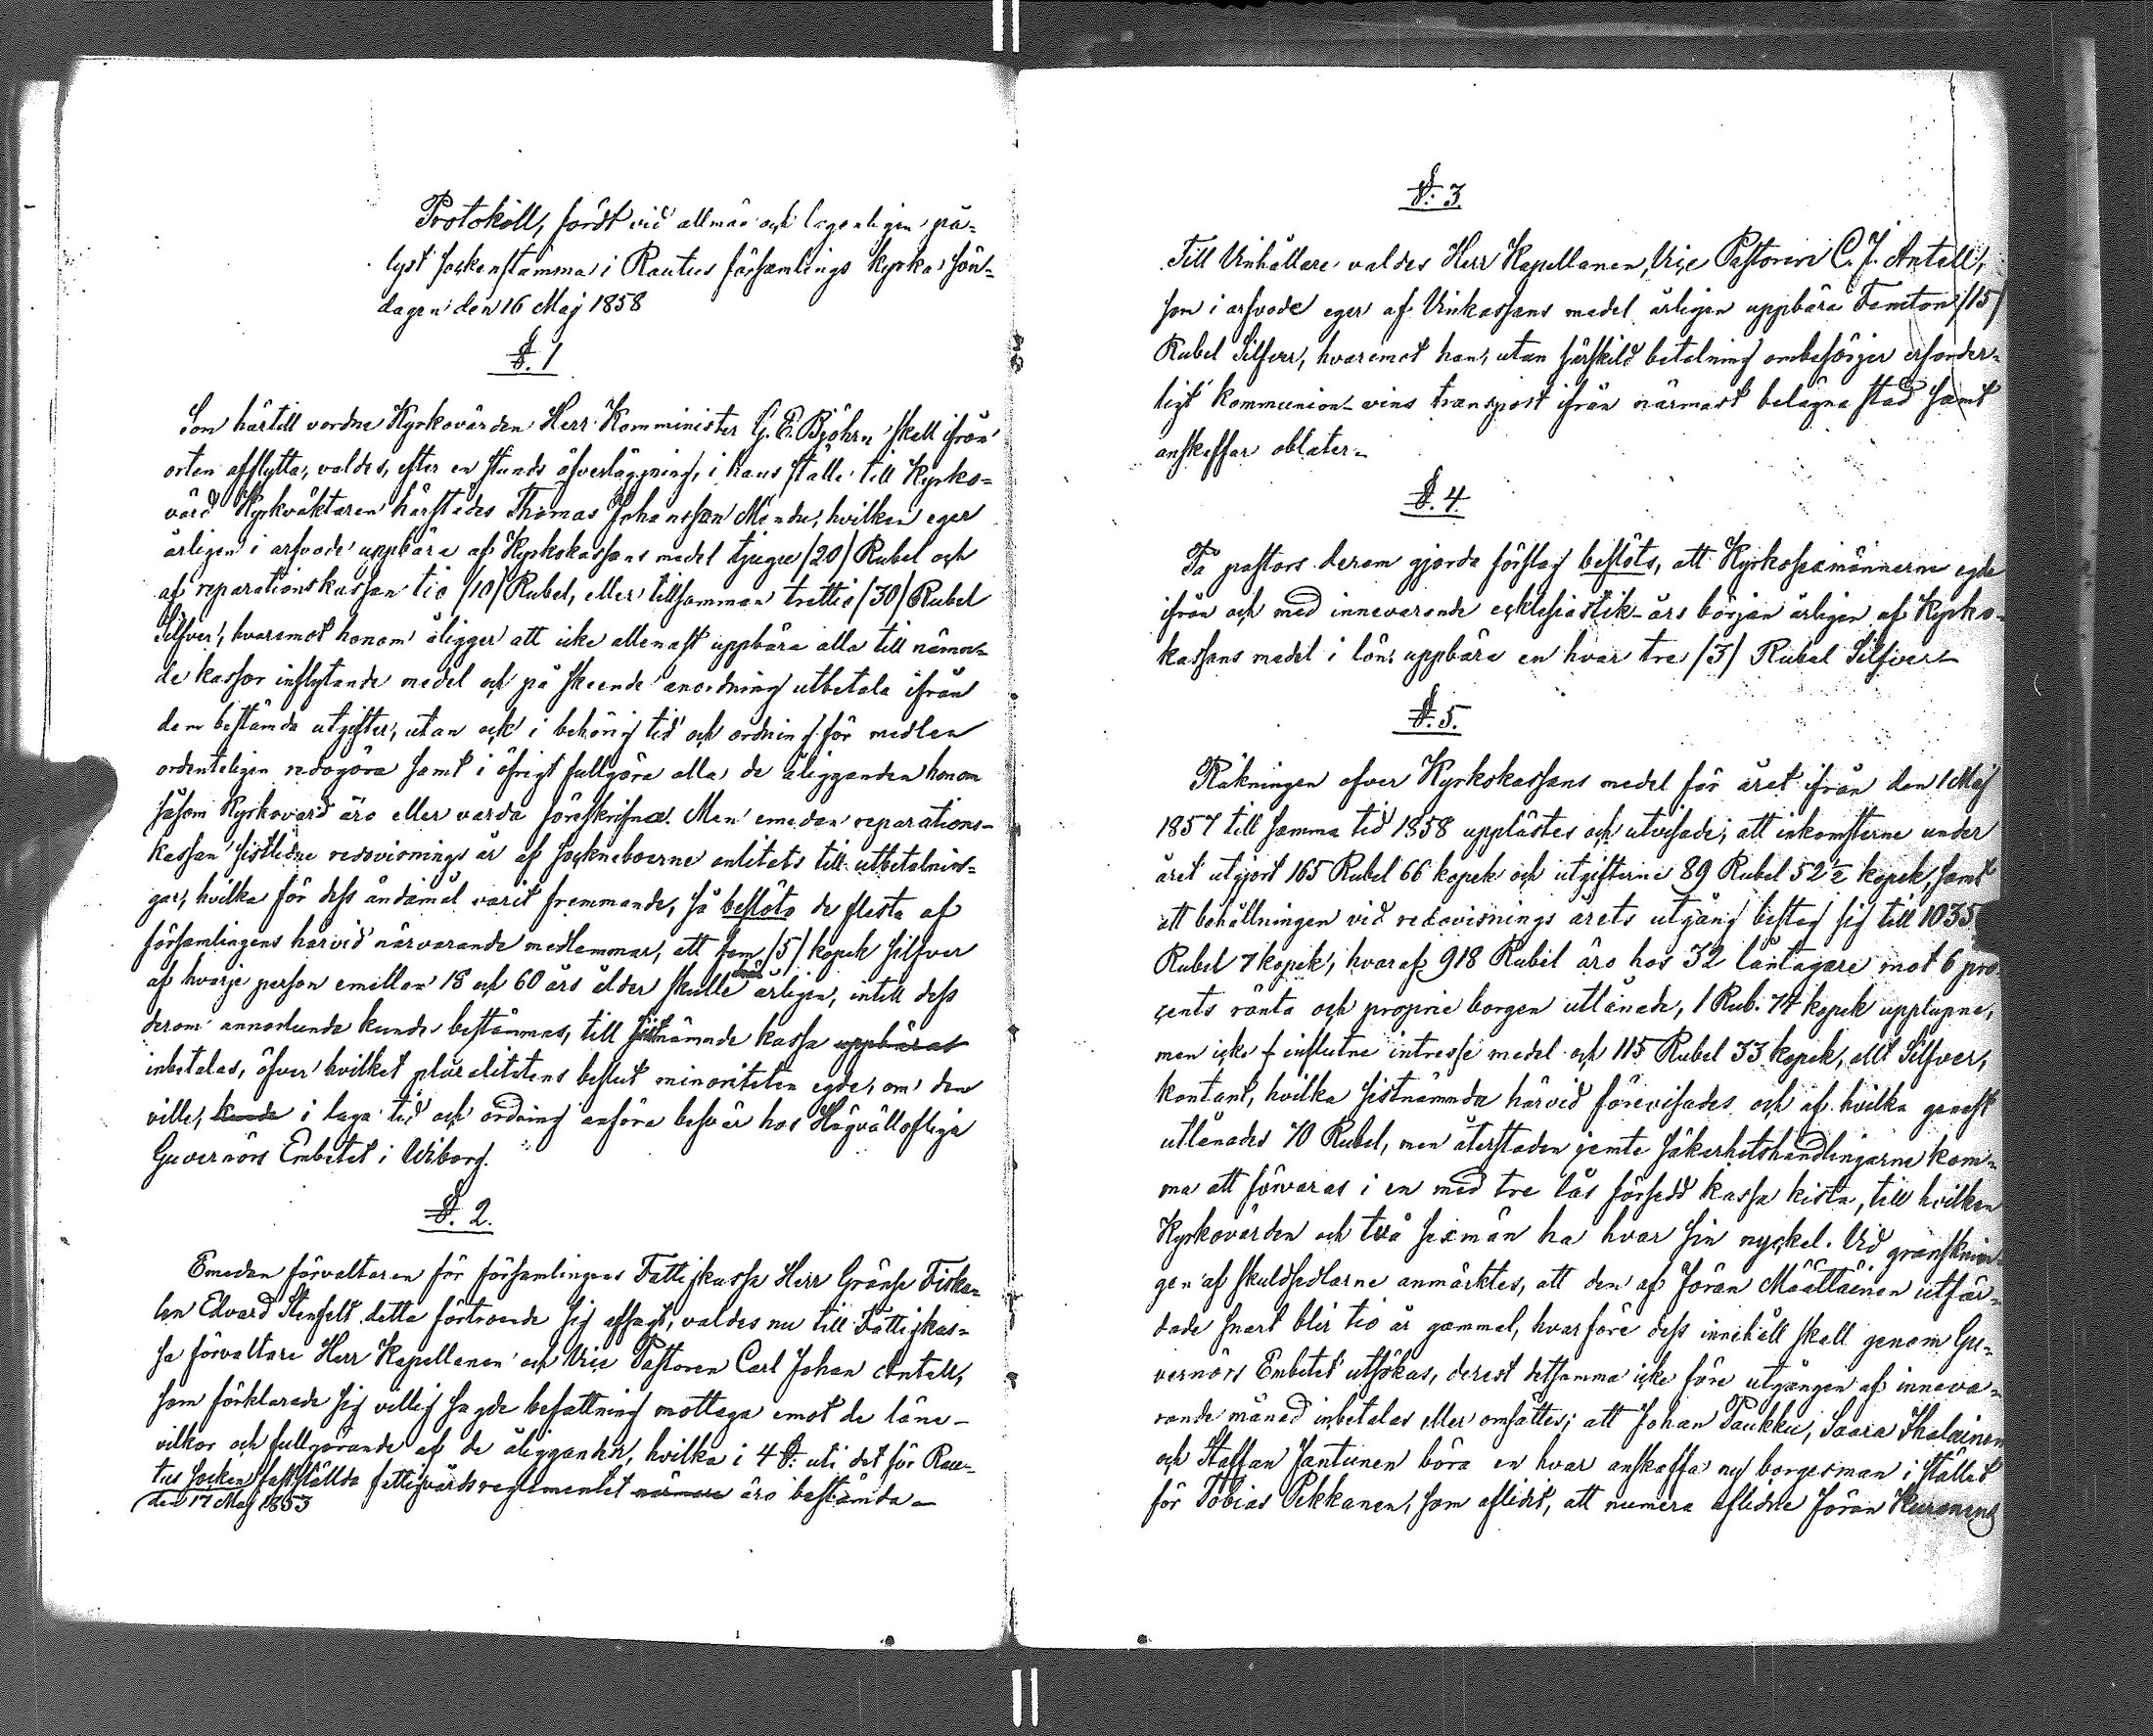 Protokoll, fördt vid allmän och lagenligen på-
lyst sockenstämma i Rautus församlings kyrka sön-
dagen den 16 Maj 1858
§. 1
Som härtill vordne Kyrkovärden Herr Komminister G. E. Björn skall ifrån
orten afflytta, valdes, efter en stunds öfverläggning, i hans ställe till Kyrko-
värd Kyrkväktaren härstädes Thomas Johansson Mendu, hvilken eger
årligen i arfvode uppbära af Kyrkokassans medel tjugu /20/ Rubel och
af reparationskassan tio /10/ Rubel, eller tillsamman trettio /30/ Rubel
Silfver, hvaremot honom åligger att icke allenast uppbära alla till nämn-
de kassor inflytande medel och på skeende anordning utbetala ifrån
dem bestämda utgifter, utan ock i behörig tid och ordning för medlen
ordenteligen redogöra samt i öfrigt fullgöra alla de åligganden honom
såsom Kyrkovärd äro eller varda föreskrifna. Men emedan reparations-
kassan sistledne redovisnings år af sockneboerne anlitats till utbetalnin-
gar, hvilka för dess ändamål varit fremmande, så beslöts de flesta af
församlingens härvid närvarande medlemmar, att fem /5/ kopek silfver
af hvarje person emillan 18 och 60 års ålder skulle årligen, intill dess
derom annorlunda kunde bestämmas, till sistnämnde kassa uppbäras
inbetalas, öfver hvilket pluralitetens beslut minoriteten egde, om den
ville, kunde i laga tid och ordning anföra besvär hos Högvällofliga
Guvernörs Embetet i Wiborg.
§. 2.
Emedan förvaltaren för församlingens Fattigkassa Herr Gränse Fiska-
len Edvard Stenfelt detta förtroende sig afsagt, valdes nu till Fattigkas-
sa förvaltare Herr Kapellanen och Vice Pastoren Carl Johan Antell,
som förklarade sig villig sagde befattning mottaga emot de löne-
vilkor och fullgörande af de åligganden, hvilka i 4 §. uti det för Rau-
tus socken fastställda fattigvårdsreglementet närmare äro bestämda
den 17 Maj 1853
§. 3
Till Vinhållare valdes Herr Kapellanen, Vice Pastoren C. J. Antell,
som i arfvode eger af Vinkassans medel årligen uppbära Femton /15/
Rubel Silfver, hvaremot han, utan särskild betalning ombesörjer erforder-
ligt kommunion-vins transport ifrån närmast belägna stad samt
anskaffar oblater.
§. 4.
På pastors derom gjorda förslag beslöts, att Kyrkosexmännerne egde
ifrån och med innevarande ecklesiastik-års början årligen af Kyrko-
kassans medel i lön uppbära en hvar tre /3/ Rubel Silfver
§. 5.
Räkningen öfver Kyrkokassans medel för året ifrån den 1 Maj
1857 till samma tid 1858 upplästes och utvisade, att inkomsterne under
året utgjort 165 Rubel 66 kopek och utgifterne 89 Rubel 52 ½ kopek, samt
att behållningen vid redovisnings årets utgång besteg sig till 1035
Rubel 7 kopek, hvaraf 918 Rubel äro hos 32 låntagare mot 6 pro
cents ränta och proprie borgen utlånade, 1 Rub. 74 kopek upplupne,
men icke influtne intresse medel och 115 Rubel 33 kopek, allt Silfver,
kontant, hvilka sistnämnda härvid förevisades och af hvilka genast
utlånades 70 Rubel, men återstoden jemte säkerhetshandlingarne kom-
ma att förvaras i en med tre lås försedd kassa kista, till hvilken
Kyrkovärden och två sexmän ha hvar sin nyckel. Vid gransknin-
gen af skuldsedlarne anmärktes, att den af Jöran Määttäinen utfär-
dade snart blir tio år gammal, hvarföre dess innehåll skall genom Gu-
vernörs Embetet utsökas, derest detsamma icke före utgången af inneva-
rande månad inbetalas eller omsättes; att Johan Paukku, Saara Ihalainen
och Staffan Jantunen böra en hvar anskaffa ny borgesman i stället
för Tobias Pekkanen, som aflidit, att numera aflidne Jöran Kurenens